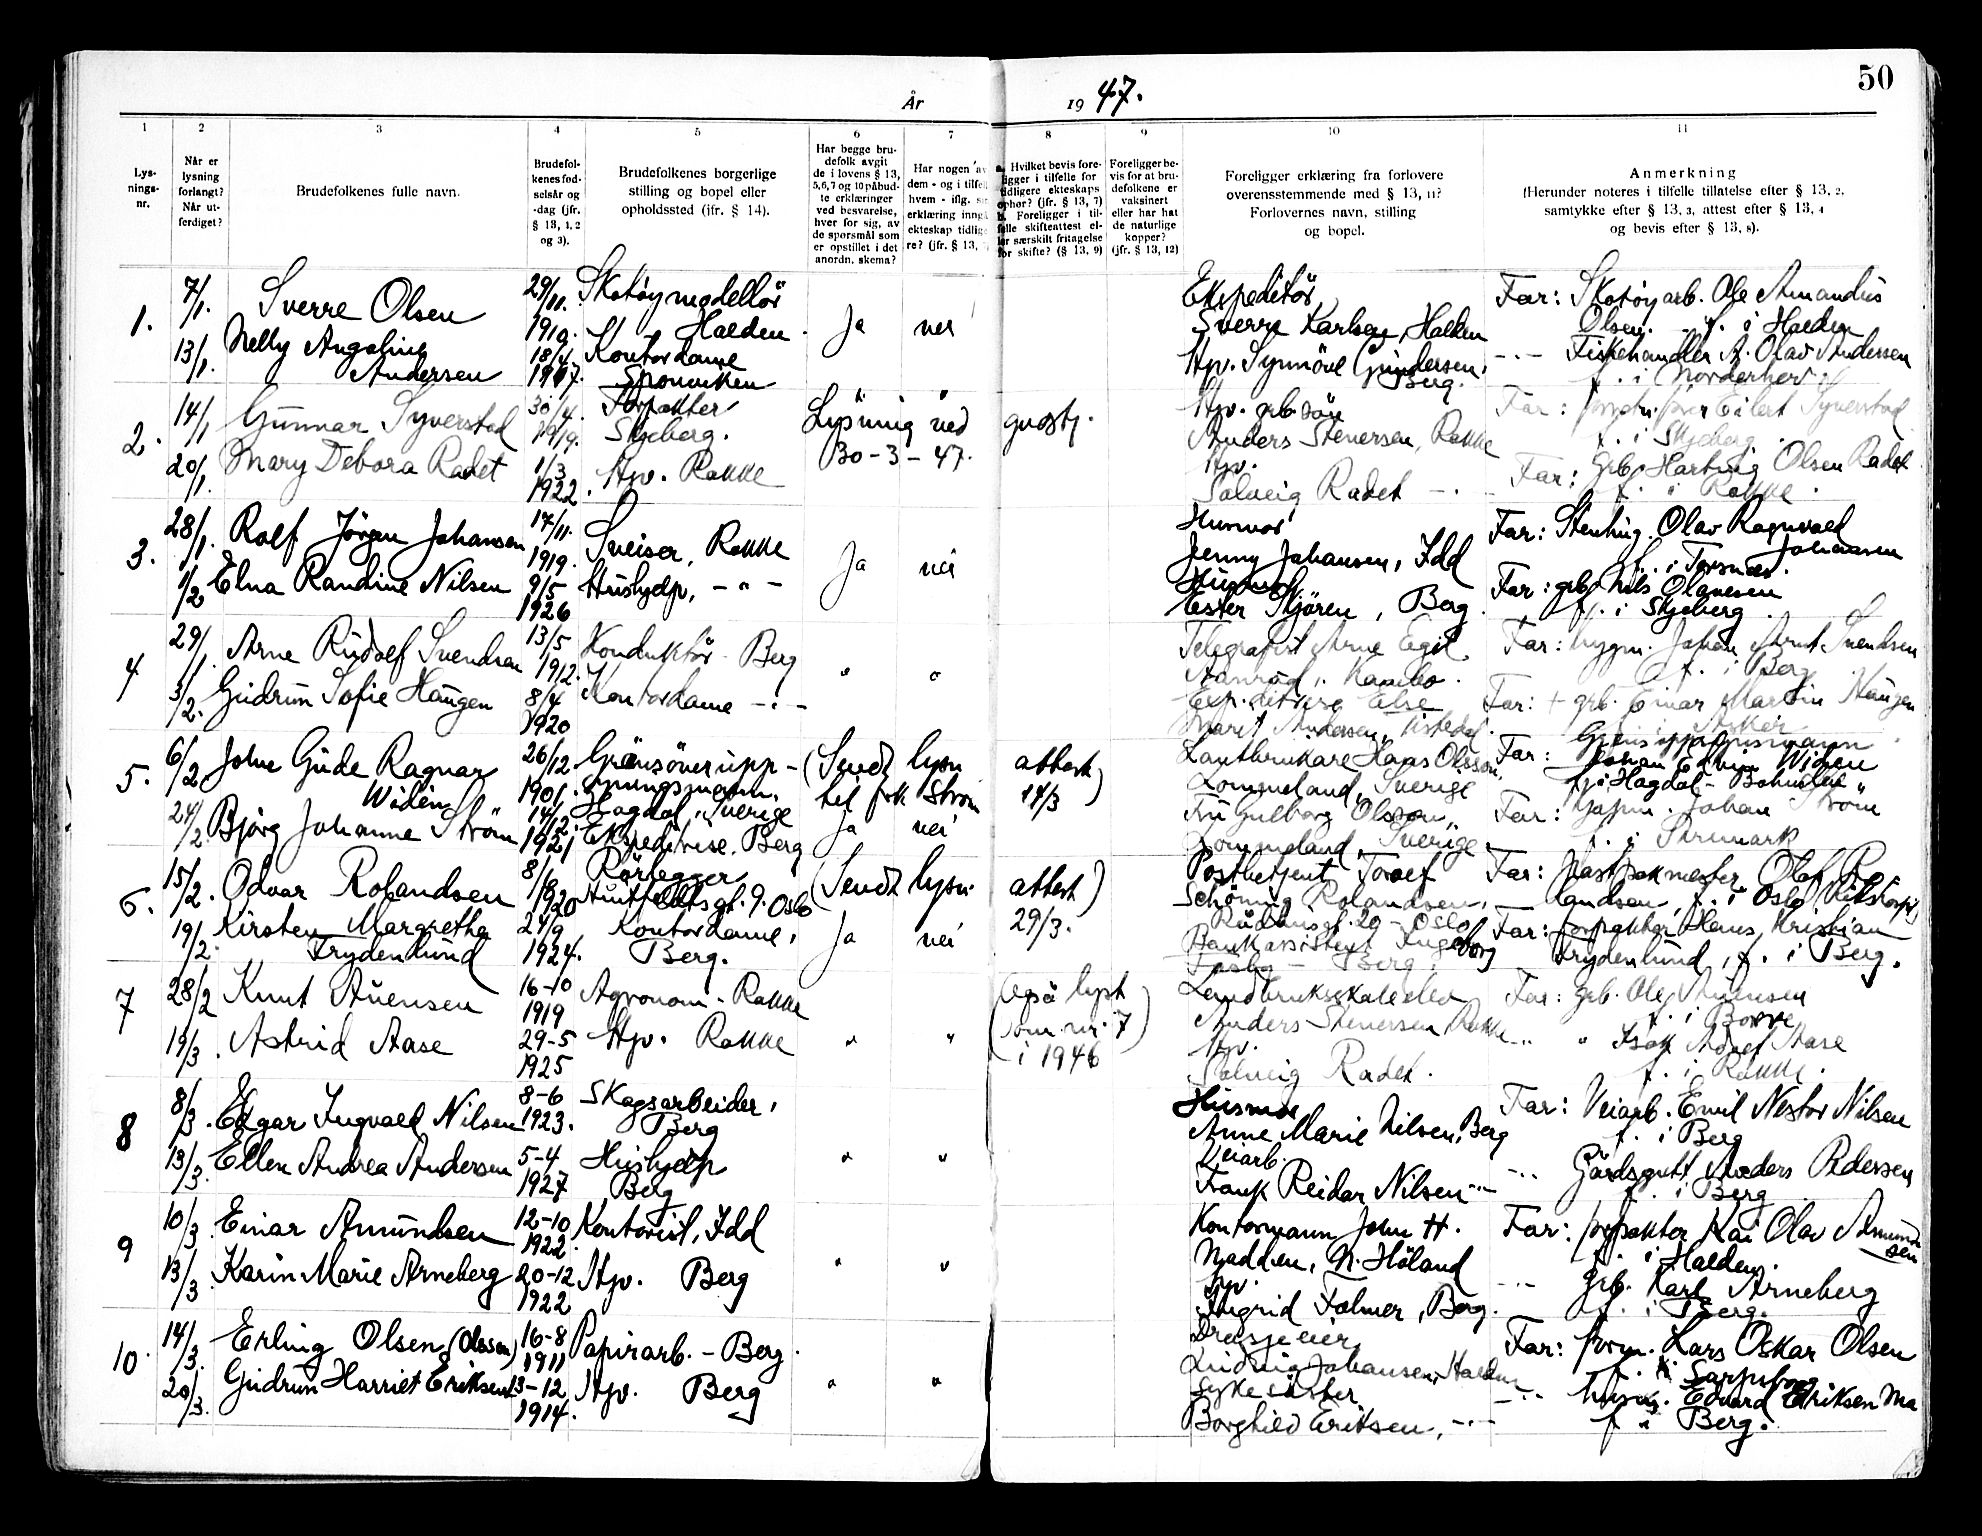 50
År 19 47.
1 2 3 4 5 6 7 8 9 10 11
Lys-
nings-
nr.
Når er
lysning
forlangt?
Når ut-
ferdiget?
Brudefolkenes fulle navn.
Brudefol-
kenes fød-
selsår og
-dag (jfr.
§ 13, 1, 2
og 3).
Brudefolkenes borgerlige
stilling og bopel eller
opholdssted (jfr. § 14).
Har begge bru-
defolk avgit
de i lovens § 13,
5, 6, 7 og 10 påbud-
te erklæringer
ved besvarelse,
hver for sig, av
de spørsmål som
er opstillet i det
anordn. skema?
Har nogen av
dem - og i tilfelle
hvem - iflg.
erklæring inngå
ekteskap tidlige
re? (jfr. § 13,
Hvilket bevis fore-
ligger i tilfelle for
tidligere ekteskaps
ophør? (jfr. § 13, 7)
Foreligger i til-
felle skifteattest el-
ler særskilt fritagelse
for skifte? (§ 13, 9)
Foreligger be-
vis for at bru-
defolkene er
vaksinert
eller har hat
de naturlige
kopper?
(jfr. § 13, 12)
Foreligger erklæring fra forlovere
overensstemmende med § 13, 11?
Forlovernes navn, stilling
og bopel.
Anmerkning
(Herunder noteres i tilfelle tillatelse efter § 13, 2,
samtykke efter § 13, 3, attest efter § 13, 4
og bevis efter § 13, 8).
1. 7/1. Sverre Olsen 29/11. 1919. Skotøymodellör Halden. Ja nei
13/1. Nelly Angeline Andersen 18/4 1917. Kontordame Sponviken
Ekspeditör,
Sverre Karlsen, Halden
Hpv. Synnöve Gundersen, Berg.
Far: Skotøyarb. Ole Amandus
Olsen. - f. i Halden
-"- Fiskehandler A. Olav Andersen
2. 14/1 Gunnar Syverstad 30/4. 1919. Forpakter Skjeberg. Lysning ved gvostj.
20/1. Mary Debora Radet 1/3 1922. Hpv. Rokke 30-3-47.
Anders Stenersen, Rokke
Hpv.
Solveig Radet -"-
f. i Skjeberg.
Far: grb. Hartvig Olsen Radet
f. i Rokke.
3. 28/1. Rolf Jörgen Johansen 17/11. 1919. Sveiser, Rokke Ja nei
1/2 Elna Randine Nilsen 9/5 1926 Hushjelp, -"-
Husmor
Jenny Johansen, Idd
Ester Skjören, Berg.
Far: Stenhug. Olav Ragnvald
Johansen
f. i Torsnes.
Far: grb. Nils Olavesen
f. i Skjeberg.
4 29/1. Arne Rudolf Svendsen 13/5 1912. Konduktör - Berg " "
3/2. Gudrun Sofie Haugen 8/4 1920 Kontordame -"-
Telegrafist Arne Egil
Aanröd, Kambo.
Marit Andersen, Tistedal.
Far: bygm. Johan Arnt Svendsen
f. i Berg
Far: + grb. Einar Martin Haugen
5. 6/2 John Gude Ragnar Widén 26/12 1901. Gränsöverupp-
syningsmann. Hogdal, Sverige (Sendt lysn attest
til frk. Ström 14/3)
24/2. Bjørg Johanne Ström 14/12. 1921 Ekspeditrise. Berg Ja nei
Lantbrukare Hans Olsson,
Lommeland, Sverige
Fru Gulborg Olsson,
Lommeland, Sverige.
Far: Johan Edvin Widén
f. i Hogdal - Bohuslen
Far: Johan Ström
6. 15/2. Odvar Rolandsen 8/1 1920 Rörlegger Huitfeldtsgt. 9. Oslo (Sendt lysn. attest)
29/3.
19/2. Kirsten Margrethe Frydenlund 24/9 1924. Kontordame, Berg. Ja nei
Postbetjent Toralf
Schöning Rolandsen,
Rådhusgt. 20 - Oslo
Bankassistent Ingeborg
Far: Postpakmester Olaf Ro-
landsen, f. i Oslo
Far: forpakter Hans Kristian
Frydenlund, f. i Berg.
7 28/2 Knut Auensen 16-10 1919 Agronom - Rokke (også lyst
som nr. 7
i 1946)
19/3. Astrid Aase 29-5 1925 Hpv. Rokke " "
Landbrukskaldidat
Anders Stenersen, Rokke
Hpv.
Solveig Radet.
Far: grb. Ole Auensen
f. i Borre
" " Isak Adolf Aase
f. i Rokke.
8 8/3. Edgar Ingvald Nilsen 8-6 1923. Skogsarbeider, Berg
13/3. Ellen Andrea Andersen 5-4 1927 Hushjelp Berg " "
Husmor
Anne Marie Nilsen, Berg
Veiarb.
Frank Reidar Nilsen -"-
Far: Veiarb. Emil Nestor Nilsen
f. i Berg
-"- Gårdsgutt Anders Pedersen
f. i Berg
9 10/3. Einar Amundsen 12-10 1922. Kontorist, Idd
13/3. Karin Marie Arneberg 20-12 1922 Hpv. Berg " "
Kontormann John H.
Nadden, N. Höland
Hpv.
Ingrid Folmer, Berg.
Far: forpakter Kai Olav Amund-
sen
f. i Halden.
-"- grb. Karl Arneberg
f. i Berg.
10. 14/3. Erling Olsen (Olssen) 16-8 1911 Papirarb. - Berg.
20/3. Gudrun Harriet Eriksen 13-12 1914. Hpv. Berg " "
Drosjeeier
Ludvig Johansen, Halden
Sykesöster
Borghild Eriksen, -"-
Far: form. Lars Oskar Olsen
f. i Sarpsborg
-"- Edvard Eriksen Ma
f i Berg.